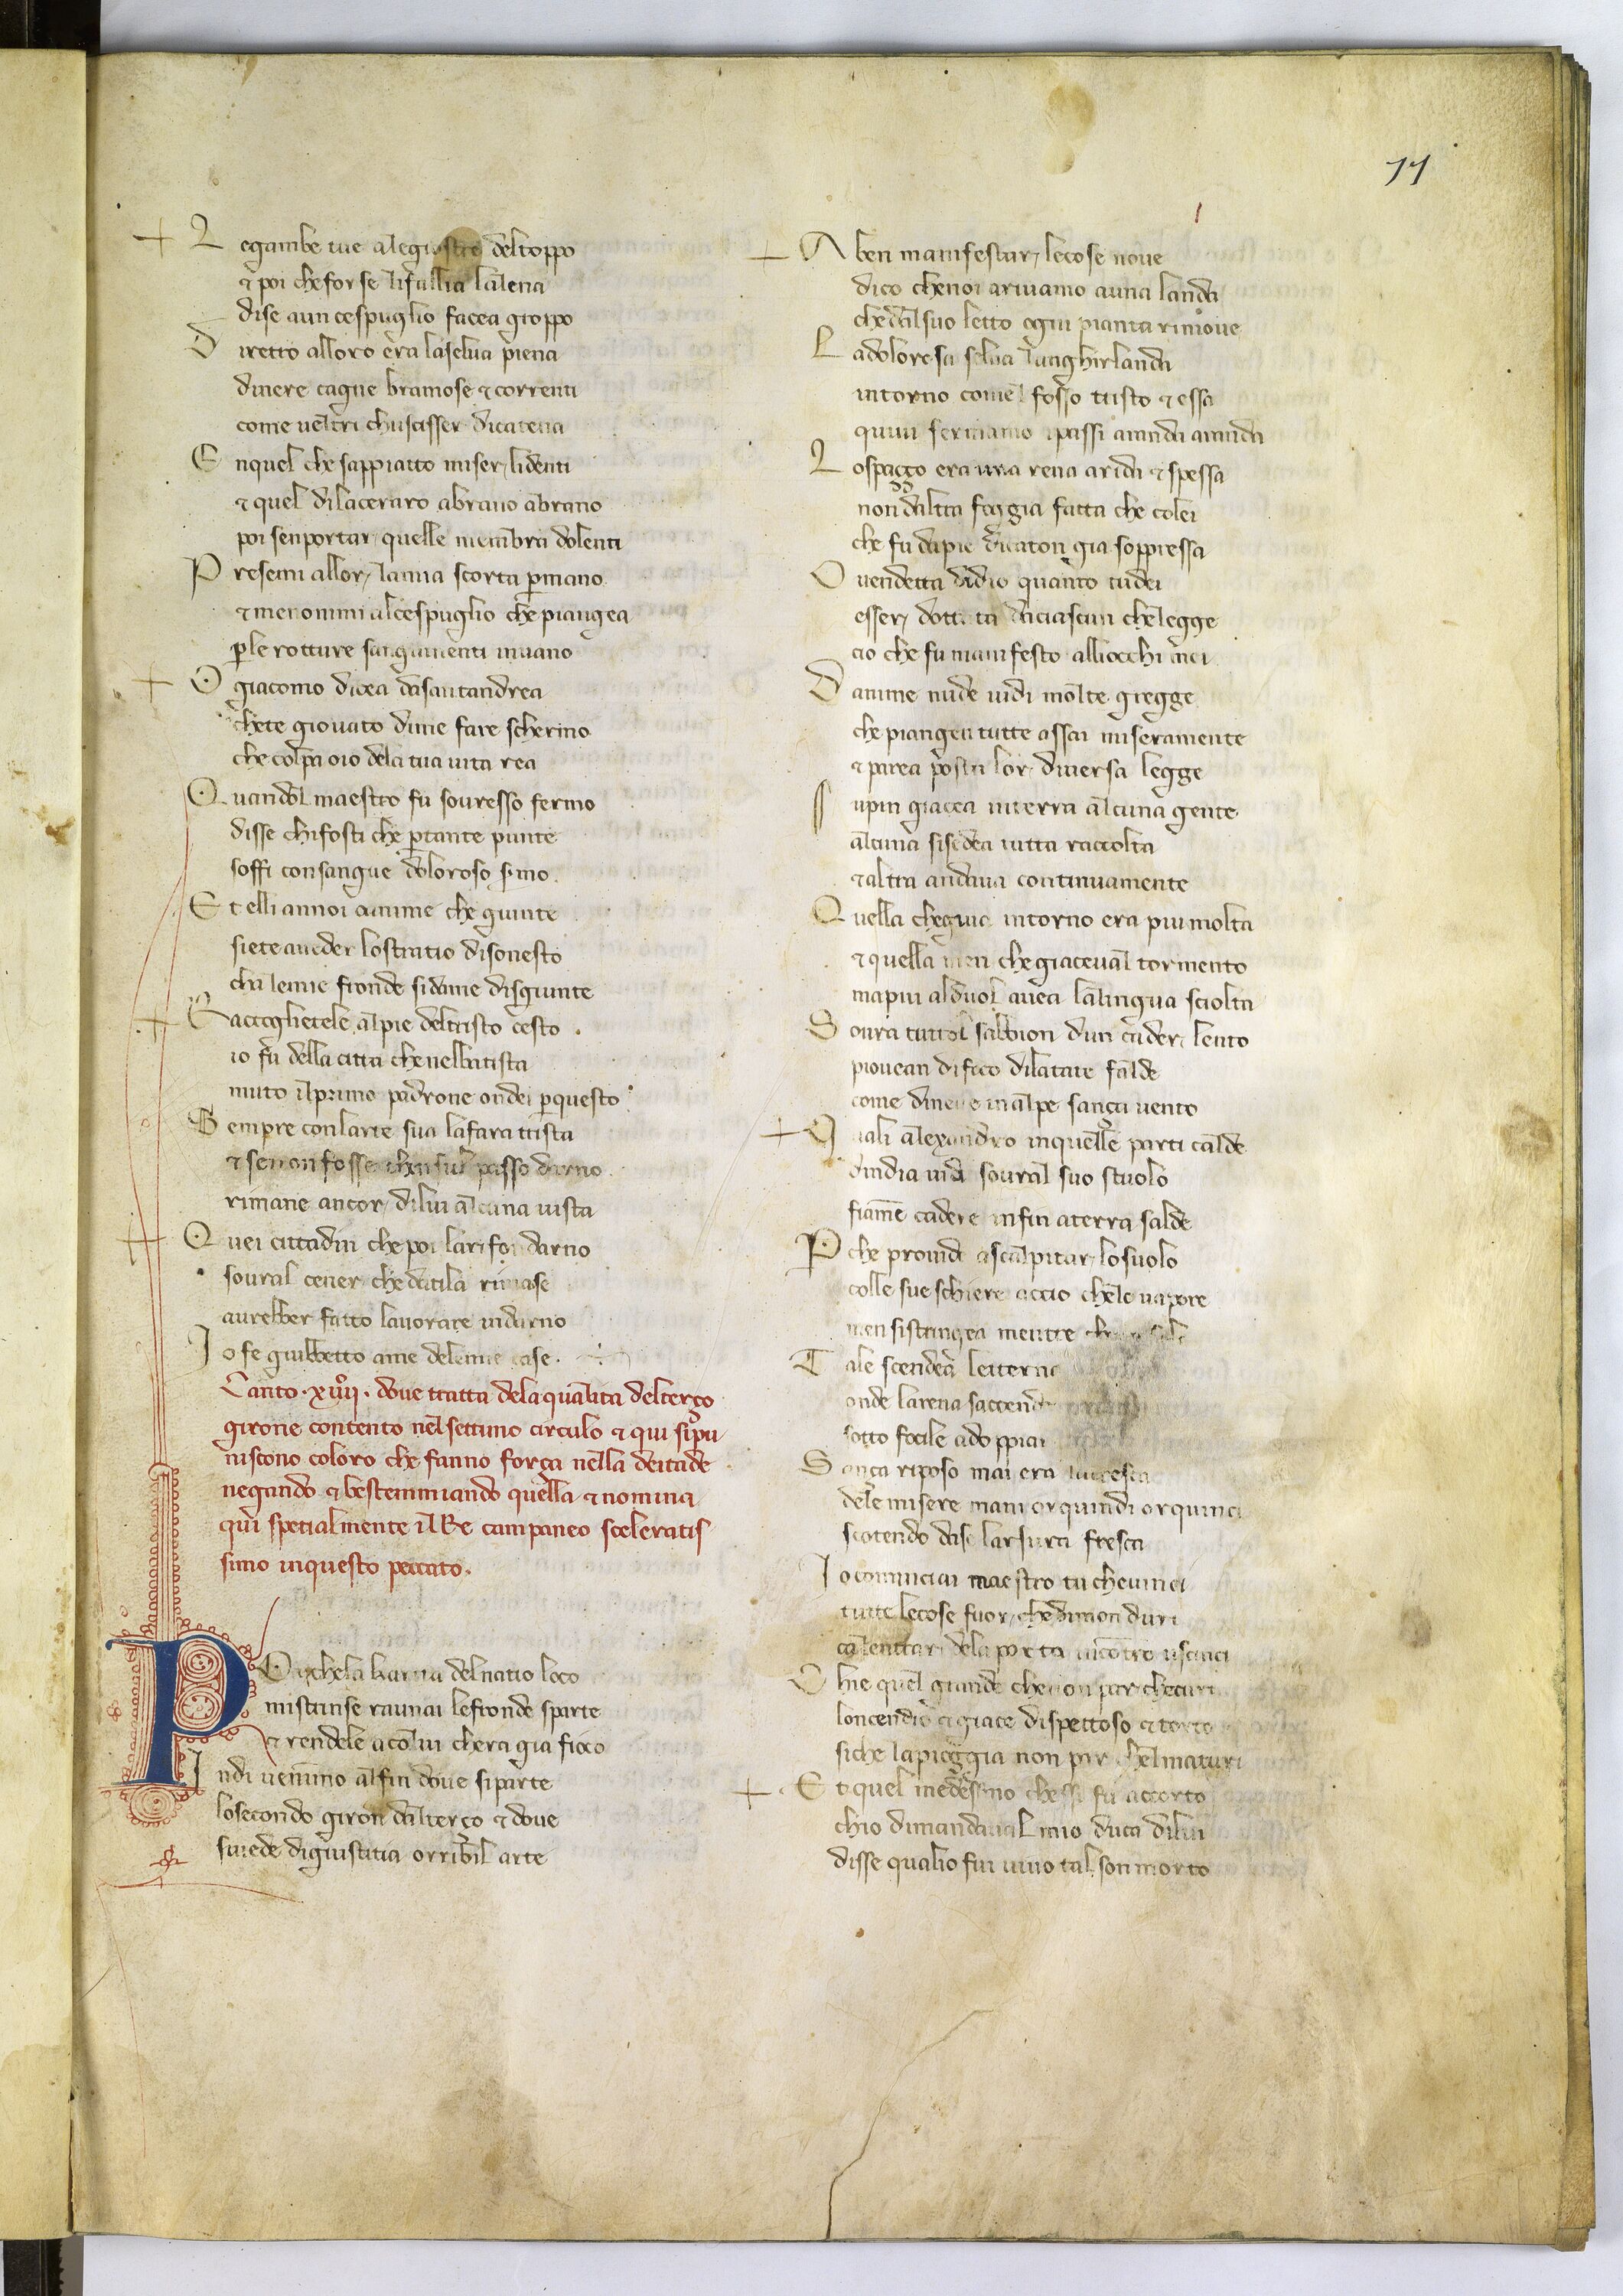 11
L egambe tue alegiostre deltoppo
& poi che forse lifallia lalena
dise aun cespuglio facea groppo
D iretto alloro era laselua piena
dinere cagne bramose & correnti
come ueltri chuscisser dicatena
E nquel che sappiatto miser lidenti
& quel dilaceraro abrano abrano
poi senportar quelle membra dolenti
P resemi allor lamia scorta p mano
& menommi alcespuglio che piangea
ple rotture sanguinenti inuano
O giacomo dicea dasantandrea
chete giouato dime fare schermo
che colpa oio dela tua uita rea
Q uandol maestro fu souresso fermo
disse chifosti che ptante punte
soffi consangue doloroso smo
E t elli annoi oanime che giunte
siete aueder lostratio disonesto
cha lemie fronde sidame disgiunte
R acoglietele alpie deltristo cesto
io fu della citta chenelbatista
muto ilprimo padrone ondei pquesto
S empre conlarte sua lafara trista
& senonfosse chensul passo darno
rimane ancor dilui alcuna uista
Q uei cittadin che poi larifondarno
soural cener chedatila rimase
aurebber fatto lauorare indarno
I o fe giubbetto ame delemie case
Canto .xiiii. doue tratta dela qualita delterço
girone contento nel settimo circulo & qui sipu
niscono coloro che fanno força nella deitade
negando & bestemmiando quella & nomina
qui spetialmente il Re campaneo sceleratis
simo inquesto peccato.
P Oi chela karita delnatio loco
mistrinse raunai lefronde sparte
& rendele acolui chera gia fioco
I ndi uenimmo alfin doue siparte
losecondo giron dalterço & doue
siuede digiustitia orribil arte
A ben manifestar lecose noue
dico chenoi ariuamo auna landa
chedalsuo letto ogni pianta rimoue
L adolorosa selua langhirlanda
intorno comel fosso tristo & essa
quiui fermamo ipassi aranda aranda
L ospaçço era una rena arida & spessa
non daltra foggia fatta che colei
che fu dapie dicaton gia soppressa
O uendetta didio quanto tudei
esser dottata diciascun chelegge
cio che fu manifesto alliocchi miei
D anime nude uidi molte gregge
che piangen tutte assai miseramente
& parea posta lor diuersa legge
S upin giacea interra alcuna gente
alcuna sisedea tutta raccolta
& altra andaua continuamente
Q uella chegiua intorno era piu molta
& quella men chegiaceual tormento
mapiu alduol auea lalingua sciolta
S oura tuttol sabbion dun cader lento
piouean difoco dilatate falde
come dineue inalpe sança uento
Q uali alexandro inquelle parti calde
dindia uidi soural suo stuolo
fiamme cadere infin aterra salde
P che prouide ascalpitar losuolo
colle sue schiere accio chele uapore
men sistringea mentre
T ale scendea letterna
onde larena saccendea
sotto focile adoppiar
S ança riposo mai era latresca
dele misere mani orquindi orquinci
scotendo dase larsura fresca
I ocominciai maestro tu cheuinci
tutte lecose fuor chedimon duri
calentrar dela porta incontro uscinci
C hie quel grande chenon par checuri
loncendio & giace dispettoso & torto
siche lapioggia non par chelmaturi
E t quel medesmo chessi fu accorto
chio dimandaual mio duca dilui
disse qualio fui uiuo tal son morto